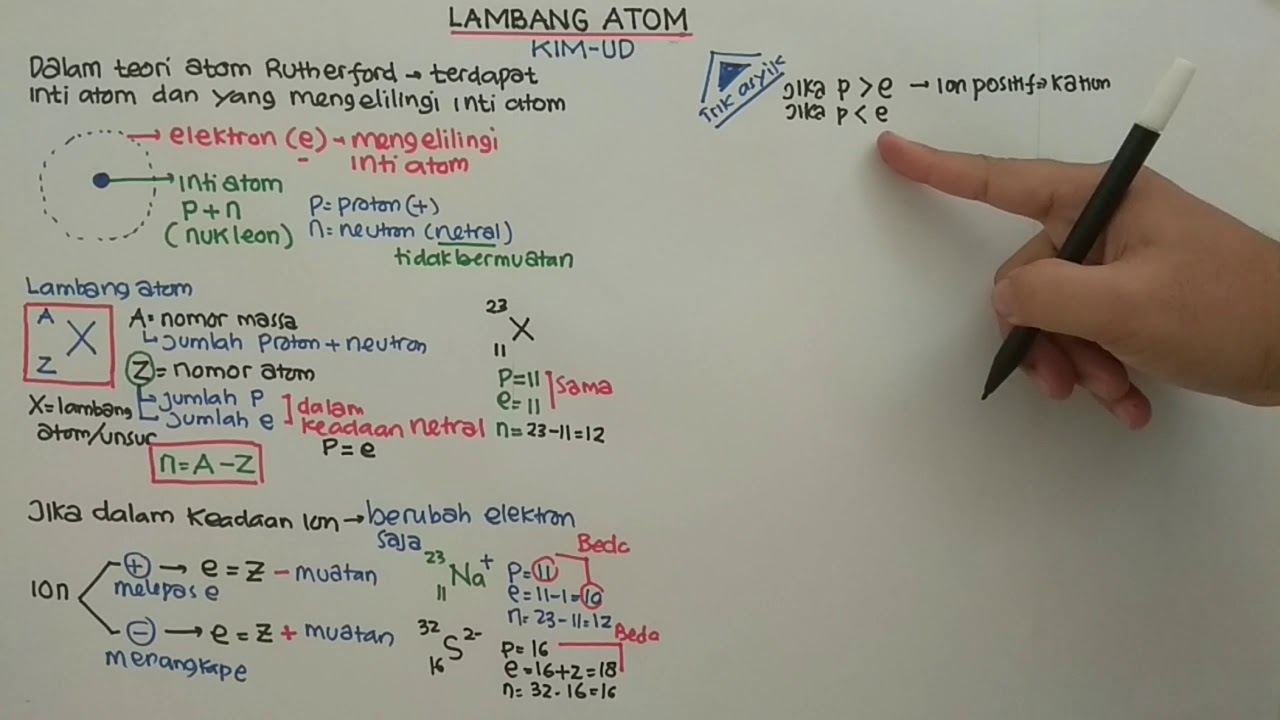 LAMBANG ATOM
KIM-UD
Dalam teori atom Rutherford → terdapat
inti atom dan yang mengelilingi inti atom
→ elektron (e) → mengelilingi
inti atom
inti atom
p+n
(nukleon)
p= proton (+)
n= neutron (netral)
tidak bermuatan
Lambang atom
A
X
Z
A= nomor massa
jumlah proton + neutron
Z = nomor atom
jumlah p
jumlah e
dalam
keadaan netral
p = e
X=lambang
atom/unsur
n=A-Z
23
X
11
p=11
e=11
sama
n=23-11=12
Jika dalam keadaan ion → berubah elektron
saja
ion
+ → e = Z - muatan
melepas e
- → e = Z + muatan
menangkap e
23
Na+
11
p=11
e=11-1=10
n=23-11=12
Beda
32
S2-
16
p=16
e=16+2=18
n=32-16=16
Beda
Trik asyik
Jika p > e → ion positif → kation
Jika p < e